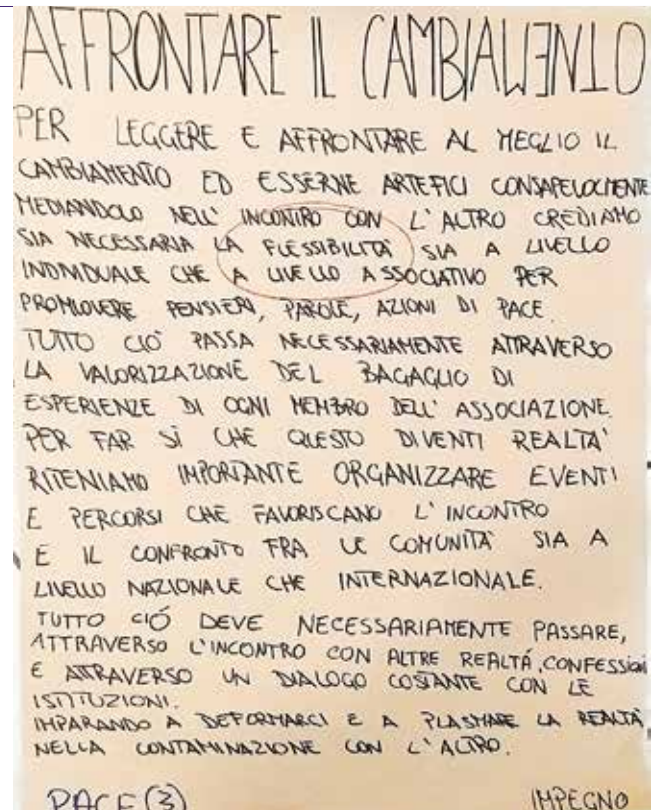 AFFRONTARE IL CAMBIAMENTO
PER LEGGERE E AFFRONTARE AL MEGLIO IL
CAMBIAMENTO ED ESSERNE ARTEFICI CONSAPEVOLMENTE
MEDIANDOLO NELL'INCONTRO CON L'ALTRO CREDIAMO
SIA NECESSARIA LA FLESSIBILITÀ SIA A LIVELLO
INDIVIDUALE CHE A LIVELLO ASSOCIATIVO PER
PROMUOVERE PENSIERI, PAROLE, AZIONI DI PACE.
TUTTO CIÒ PASSA NECESSARIAMENTE ATTRAVERSO
LA VALORIZZAZIONE DEL BAGAGLIO DI
ESPERIENZE DI OGNI MEMBRO DELL'ASSOCIAZIONE.
PER FAR SÌ CHE QUESTO DIVENTI REALTA'
RITENIAMO IMPORTANTE ORGANIZZARE EVENTI
E PERCORSI CHE FAVORISCANO L'INCONTRO
E IL CONFRONTO FRA LE COMUNITÀ SIA A
LIVELLO NAZIONALE CHE INTERNAZIONALE.
TUTTO CIÓ DEVE NECESSARIAMENTE PASSARE,
ATTRAVERSO L'INCONTRO CON ALTRE REALTÁ, CONFESSIONI
E ATTRAVERSO UN DIALOGO COSTANTE CON LE
ISTITUZIONI.
IMPARANDO A DEFORMARCI E A PLASMARE LA REALTÀ
NELLA CONTAMINAZIONE CON L'ALTRO.
PACE (3) IMPEGNO